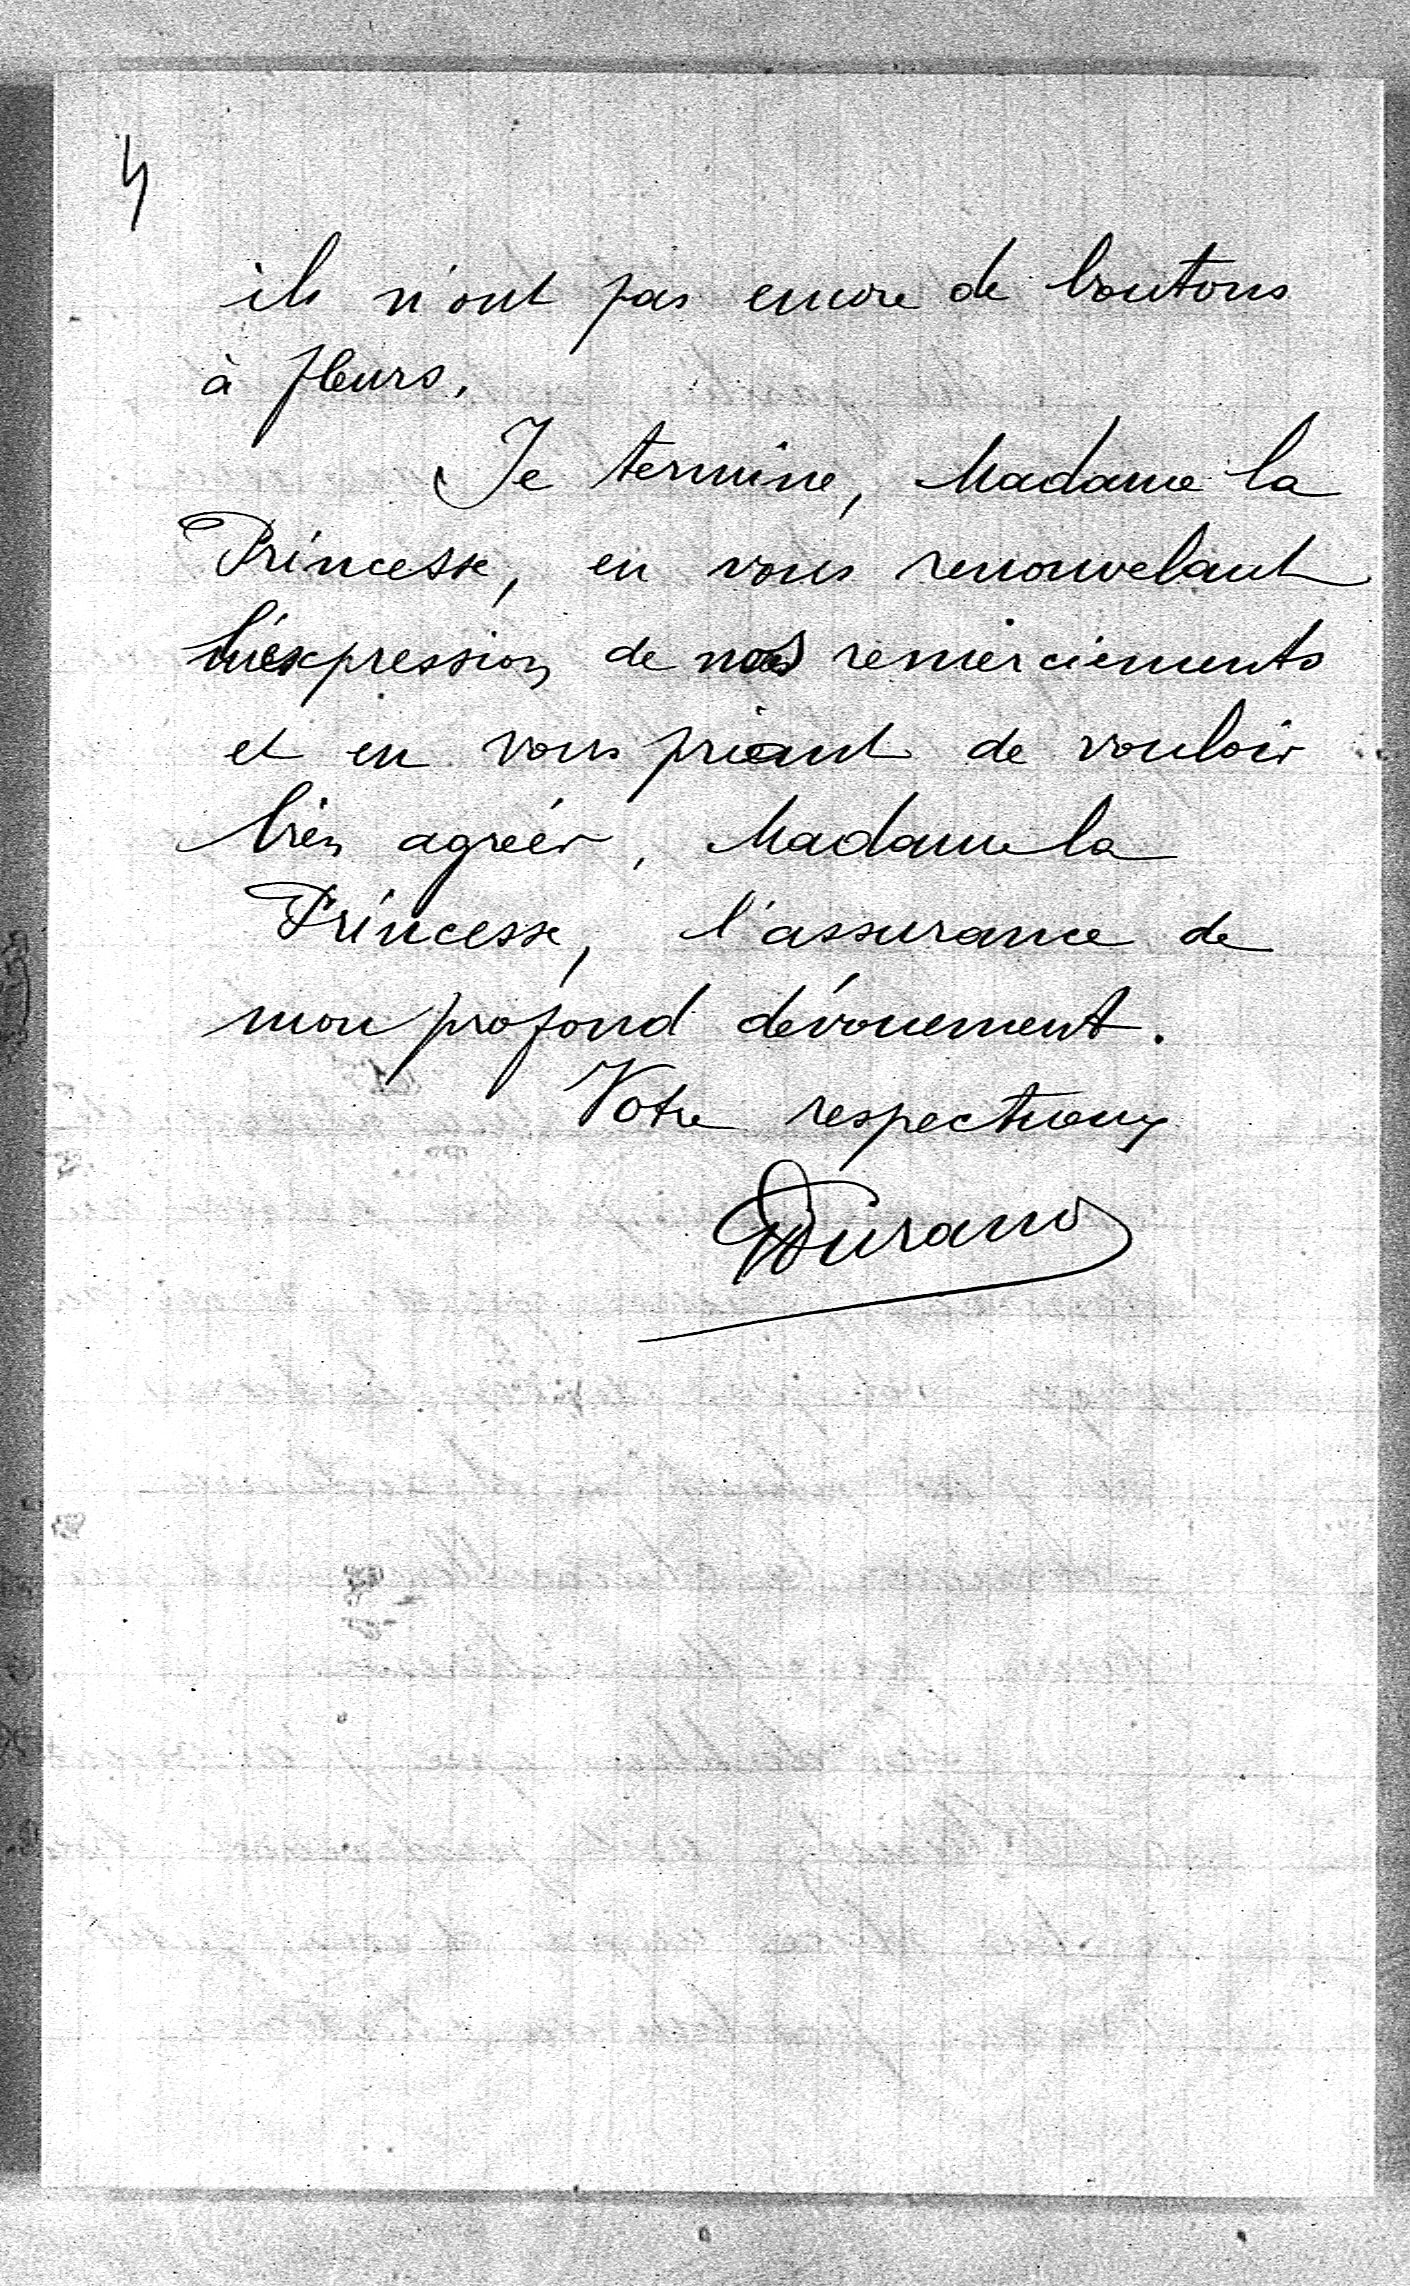 4
ils n'ont pas encore de boutons
à fleurs.
Je termine, Madame la
Princesse, en vous renouvelant
l'expression de nos remerciements
et en vous priant de vouloir
bien agréer, Madame la
Princesse, l'assurance de
mon profond dévouement.
Votre respectueux
Durand